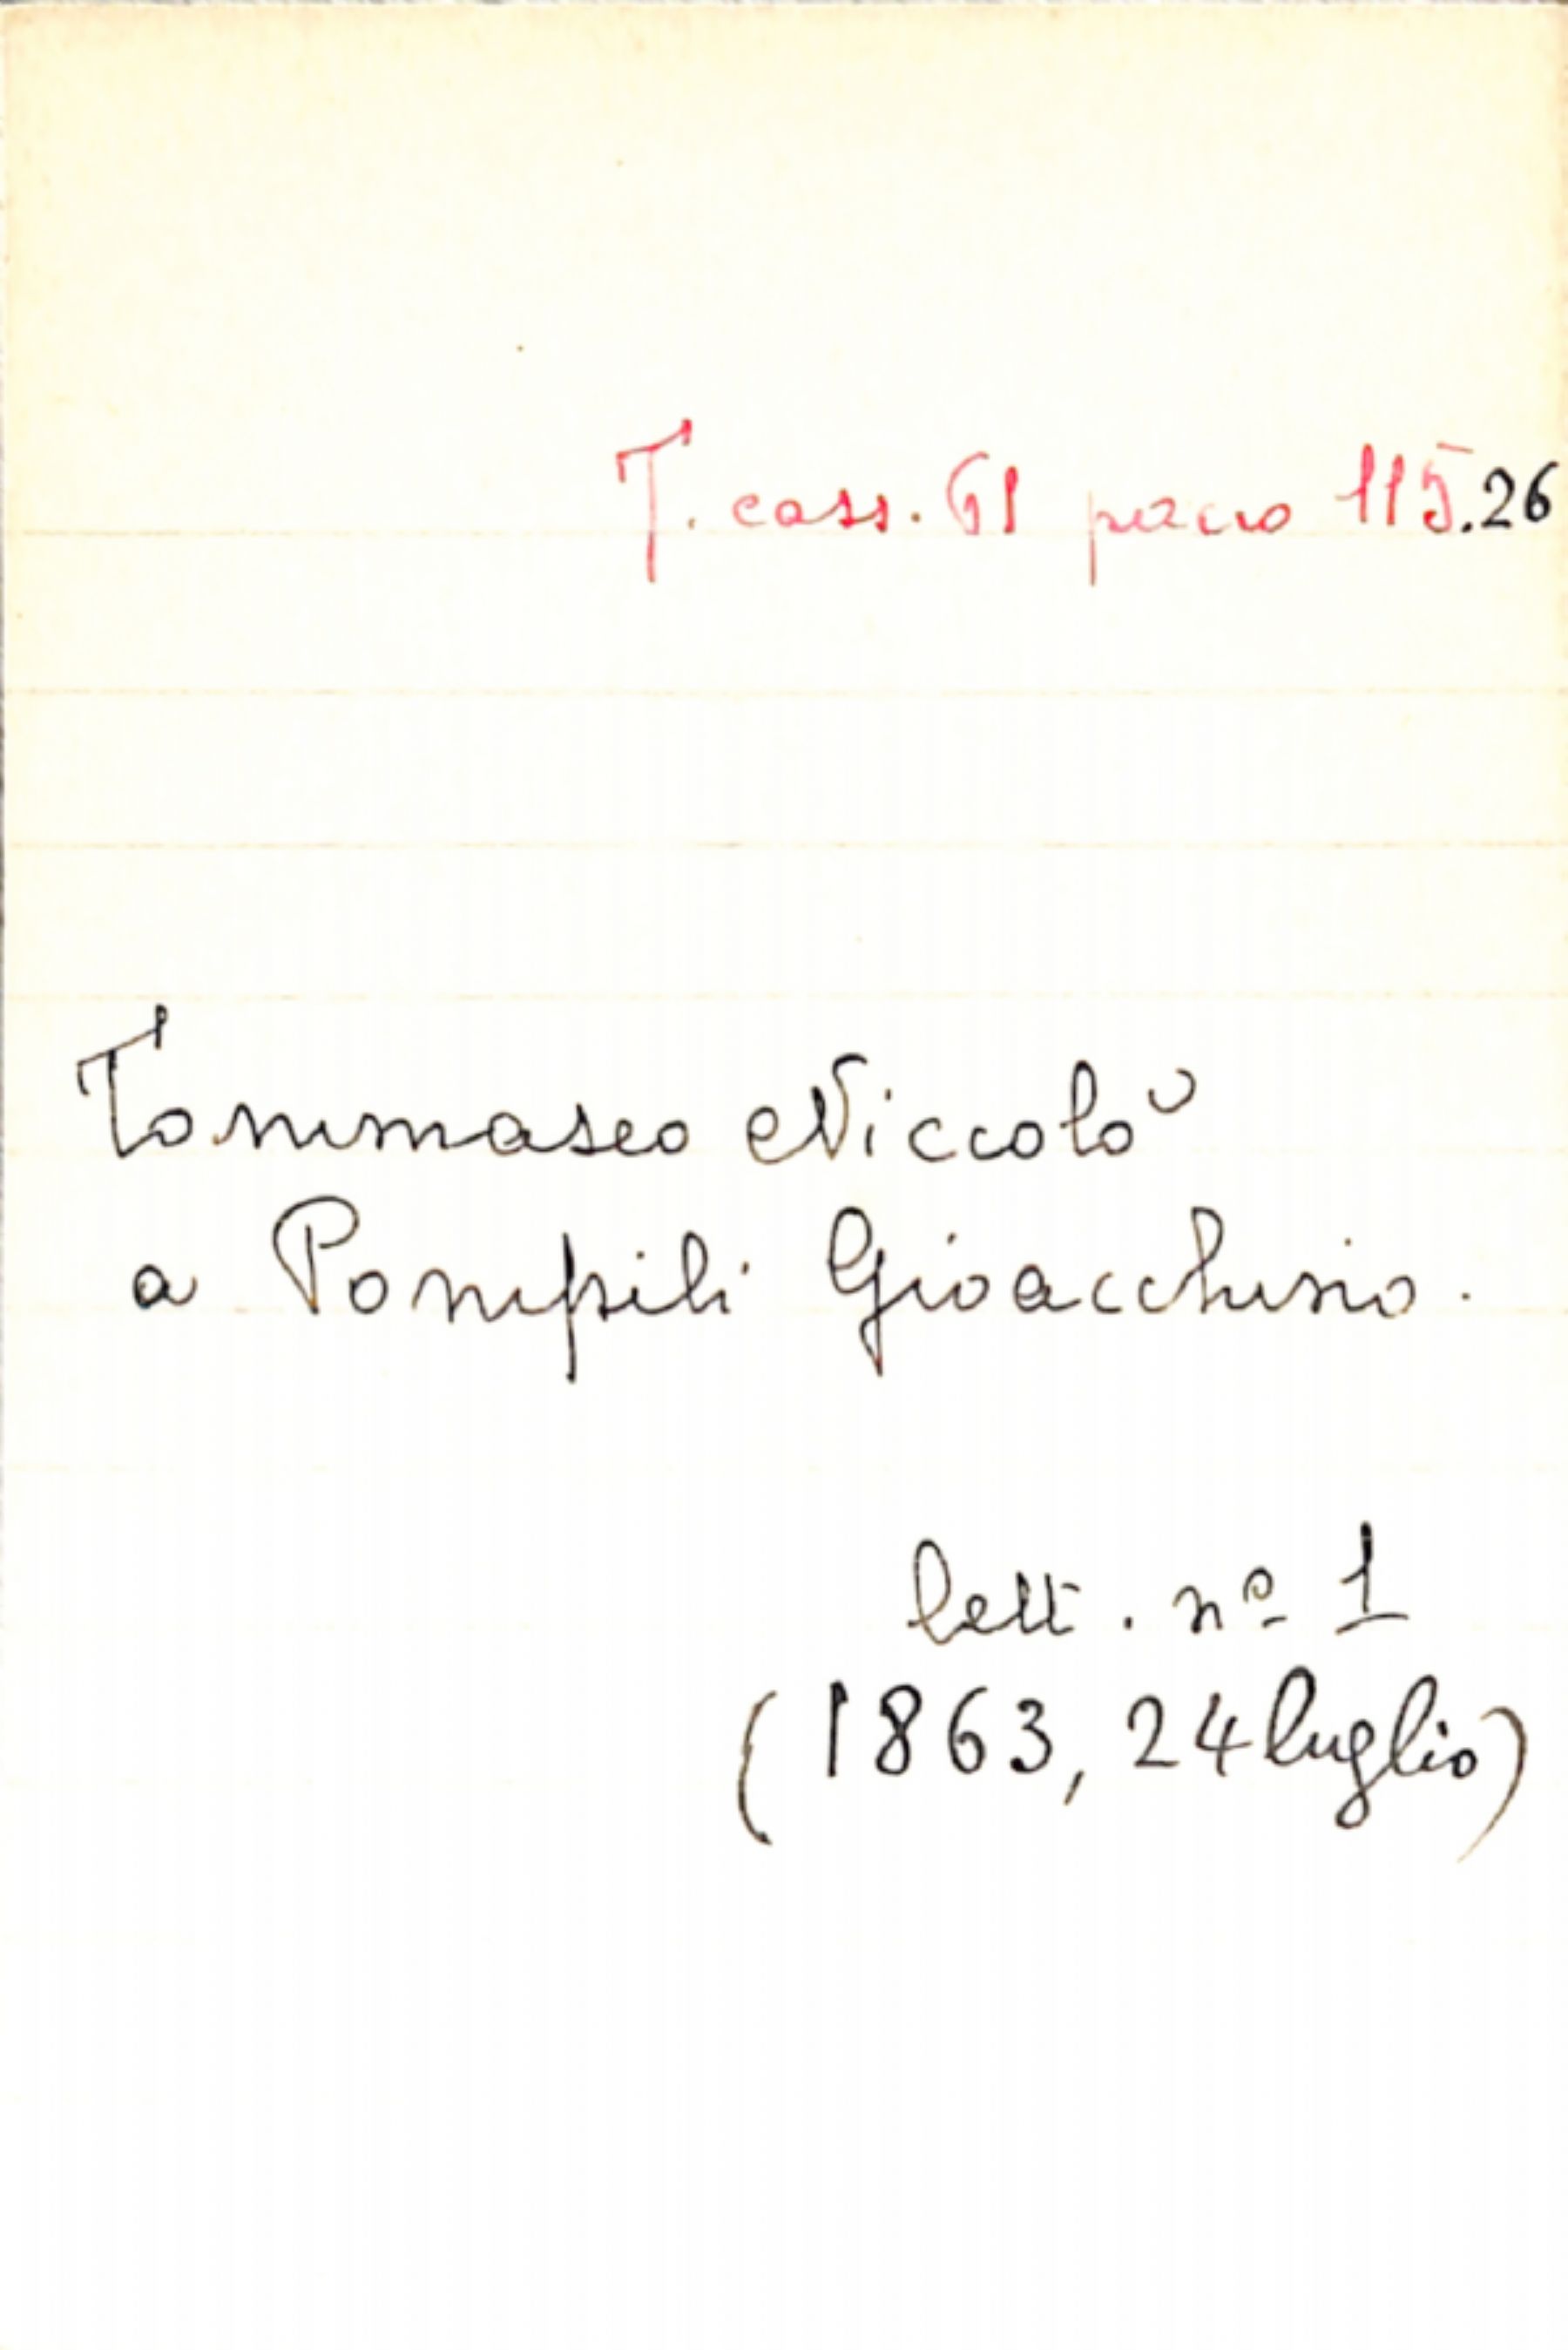 T. cass. 61 pacco 115.26
Tommaseo Niccolò
a Pompili Gioacchino.
lett. nº 1
(1863, 24 luglio)